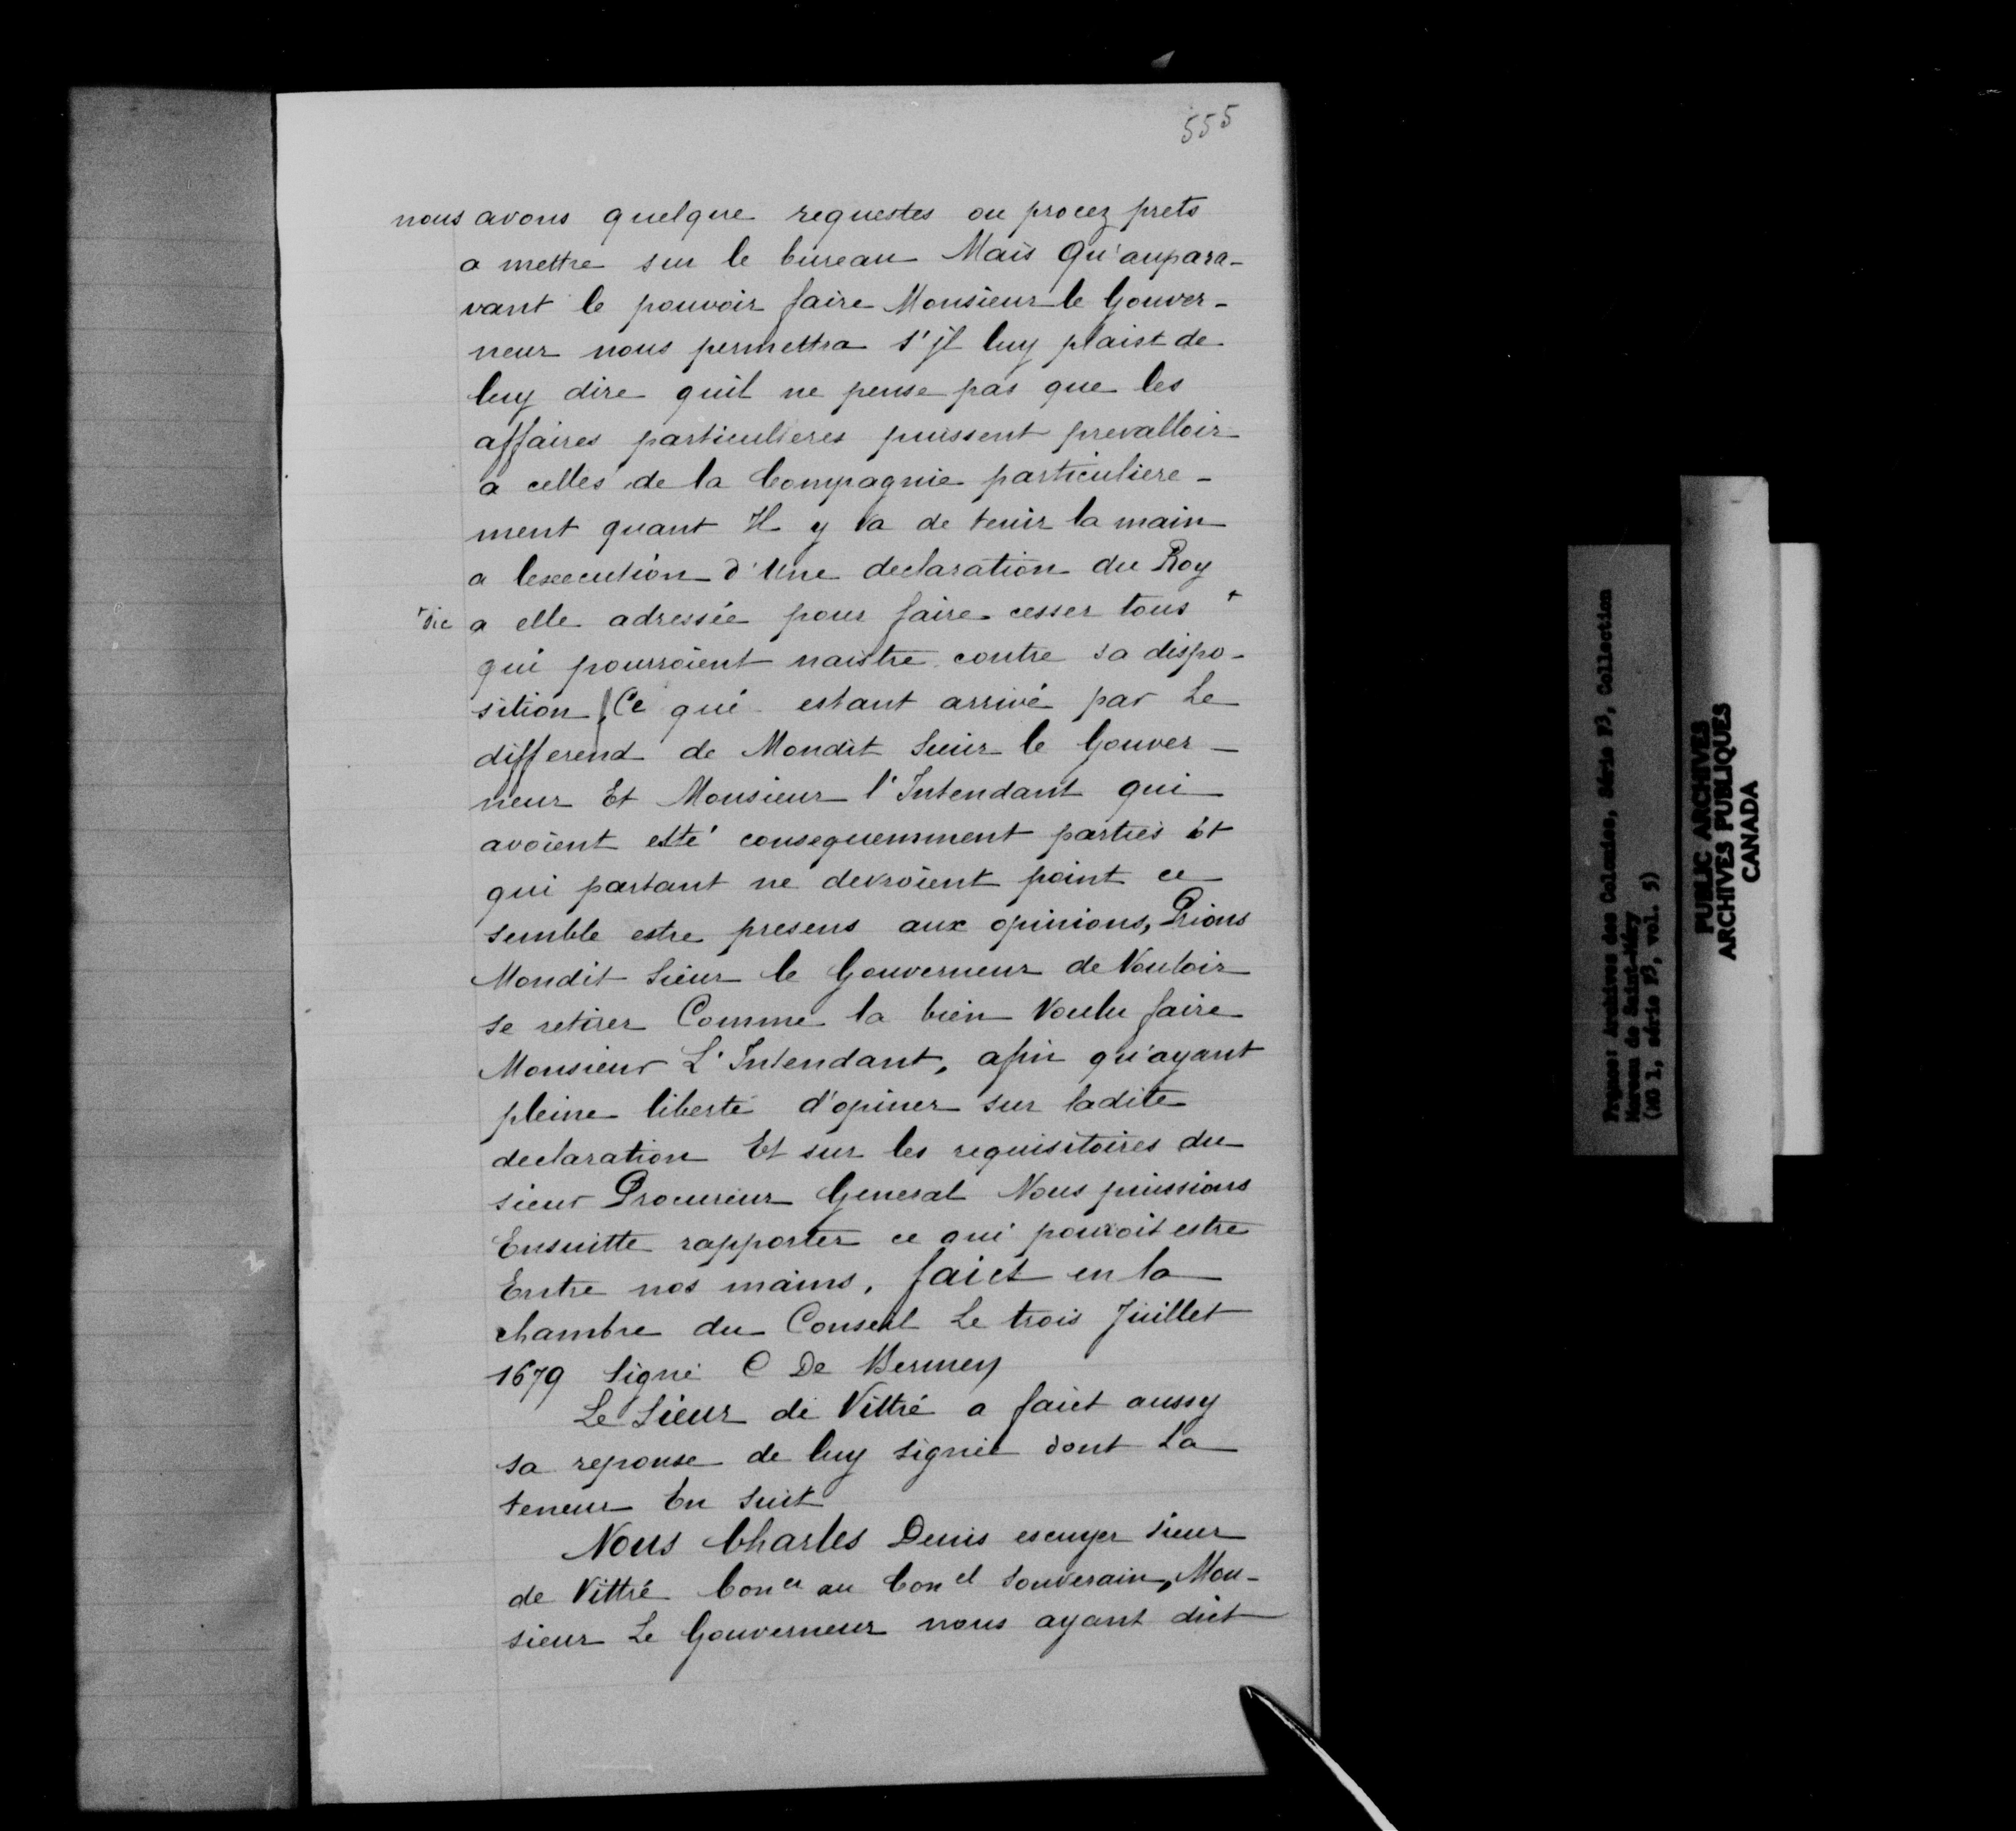 555
nous avons quelque requestes ou procez prets
a mettre sur le bureau Mais Qu'aupara-
vant le pouvoir faire Monsieur le Gouver-
neur nous permettra s'jl luy plaist de
luy dire quil ne pense pas que les
affaires particulieres puissent prevalloir
a celles de la Compagnie particuliere-
ment quant Il y va de tenir la main
a lexecution d'Une declaration du Roy
+sic a elle adressée pour faire cesser tous +
qui pourroient naistre contre sa dispo-
sition, Ce qui estant arrivé par Le
differend de Mondit Sieur le Gouver-
neur Et Monsieur l'Intendant qui
avoient esté consequemment parties Et
qui partant ne devroient point ce
semble estre presens aux opinions, Prions
Mondit Sieur le Gouverneur de Vouloir
se retirer Comme la bien Voulu faire
Monsieur L'Intendant, afin qu'ayant
pleine liberté d'opiner sur ladite
declaration Et sur les requisitoires du
sieur Procureur General Nous puissions
Ensuitte rapporter ce qui pouroit estre
Entre nos mains, faict en la
chambre du Conseil Le trois Juillet
1679 Signé C De Bermen
Le Sieur de Vittré a faict aussy
sa reponse de luy signée dont La
teneur En suit
Nous Charles Denis escuyer sieur
de Vittré Con.er au Con.el Souverain, Mon-
sieur Le Gouverneur nous ayant dict
France: Archives des Colonies, Série F3, Collection
Moreau de Saint-Méry
(MG 1, série F3, vol. 5)
PUBLIC ARCHIVES
ARCHIVES PUBLIQUES
CANADA